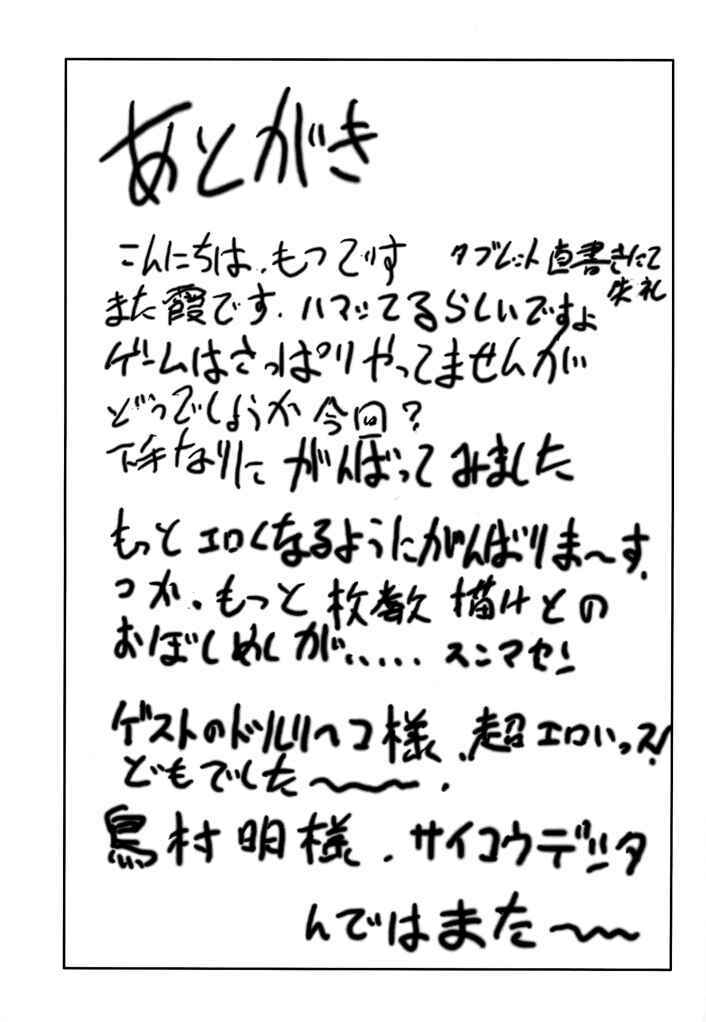 あとがき
こんにちは、もつです
タブレット直書きにて
失礼
また霞です、ハマッてるらしいですよ
ゲームはさっぱりやってませんが
どうでしょうか今回?
下手なりにがんばってみました
もっとエロくなるようにがんばりま〜す、
つか、もっと枚数描けとの
おぼしめしが..... スンマセン
ゲストのドルリヘコ様、超エロいっス!
どもでした〜〜.
鳥村明様、サイコウデシタ
んではまた〜〜